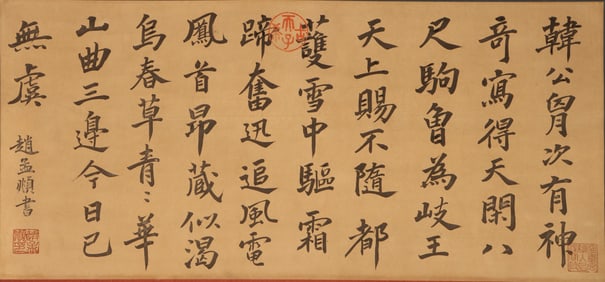 韓公胷次有神
竒寫得天閑八
尺駒曾為岐王
天上賜不隨都
䕶雪中驅霜
蹄奮迅追風電
鳳首昂藏似渴
烏春草青〻華
山曲三邊今日已
無虞
趙孟頫書